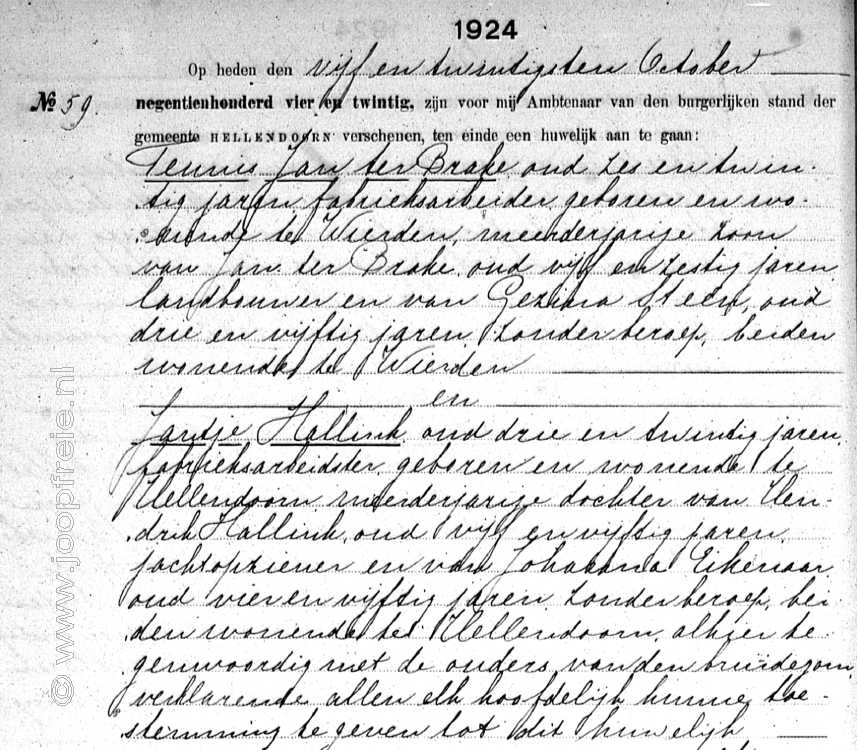 1924
Op heden den vijf en twintigsten October
No 59. negentienhonderd vier en twintig, zijn voor mij Ambtenaar van den burgerlijken stand der
gemeente HELLENDOORN verschenen, ten einde een huwelijk aan te gaan:
Teunis Jan ter Brake oud zes en twin-
tig jaren fabrieksarbeider geboren en wo-
nende te Wierden, meerderjarige zoon
van Jan ter Brake, oud vijf en zestig jaren
landbouwer en van Gezina Steen, oud
drie en vijftig jaren, zonder beroep, beiden
wonende te Wierden
en
Jantje Hallink, oud drie en twintig jaren,
fabrieksarbeidster, geboren en wonende te
Hellendoorn, meerderjarige dochter van Hen-
drik Hallink, oud vijf en vijftig jaren,
jachtopziener en van Johanna Eikenaar
oud vier en vijftig jaren zonder beroep, bei
den wonende te Hellendoorn, alhier te-
genwoordig met de ouders van den bruidegom,
verklarende allen elk hoofdelijk hunne toe-
stemming te geven tot dit huwelijk
© www.joopfreie.nl